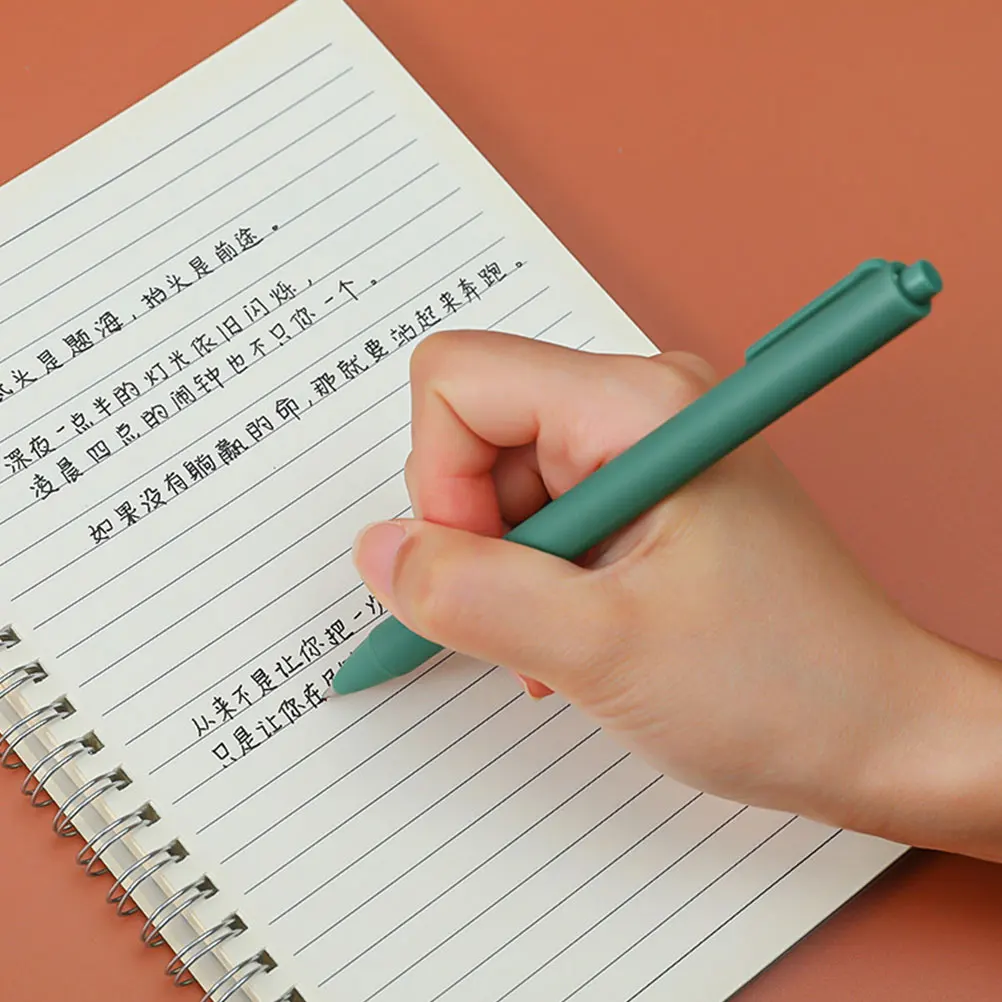 头是题海,抬头是前途。
深夜一点半的灯光依旧闪烁,
凌晨四点的闹钟也不只你一个。
如果没有躺赢的命,那就要站起来奔跑。
从来不是让你把一次
只是让你在